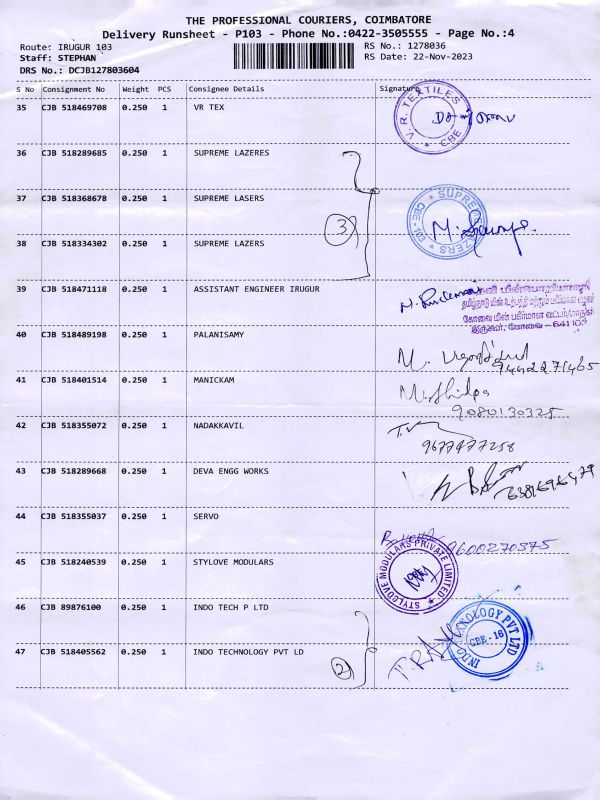 THE PROFESSIONAL COURIERS, COIMBATORE
Delivery Runsheet - P103 - Phone No.:0422-3505555 - Page No.:4
Route: IRUGUR 103 RS No.: 1278036
Staff: STEPHAN RS Date: 22-Nov-2023
DRS No.: DCJB127803604
S No Consignment No Weight PCS Consignee Details Signature
35 CJB 518469708 0.250 1 VR TEX
V. R. TEXTILES ★ CBE ★
36 CJB 518289685 0.250 1 SUPREME LAZERES
37 CJB 518368678 0.250 1 SUPREME LASERS
3
SUPREME LAZERS ★ CBE-103 ★
38 CJB 518334302 0.250 1 SUPREME LAZERS
39 CJB 518471118 0.250 1 ASSISTANT ENGINEER IRUGUR
இருகூர், கோவை - 641103
40 CJB 518489198 0.250 1 PALANISAMY
9442271465
41 CJB 518401514 0.250 1 MANICKAM
M. Shilpa
9080130325
42 CJB 518355072 0.250 1 NADAKKAVIL
9677977258
43 CJB 518289668 0.250 1 DEVA ENGG WORKS
44 CJB 518355037 0.250 1 SERVO
9600270375
45 CJB 518240539 0.250 1 STYLOVE MODULARS
STYLCOVE MODULARS PRIVATE LIMITED ★
46 CJB 89876100 0.250 1 INDO TECH P LTD
47 CJB 518405562 0.250 1 INDO TECHNOLOGY PVT LD
2
INDO TECHNOLOGY PVT LTD
CBE - 16